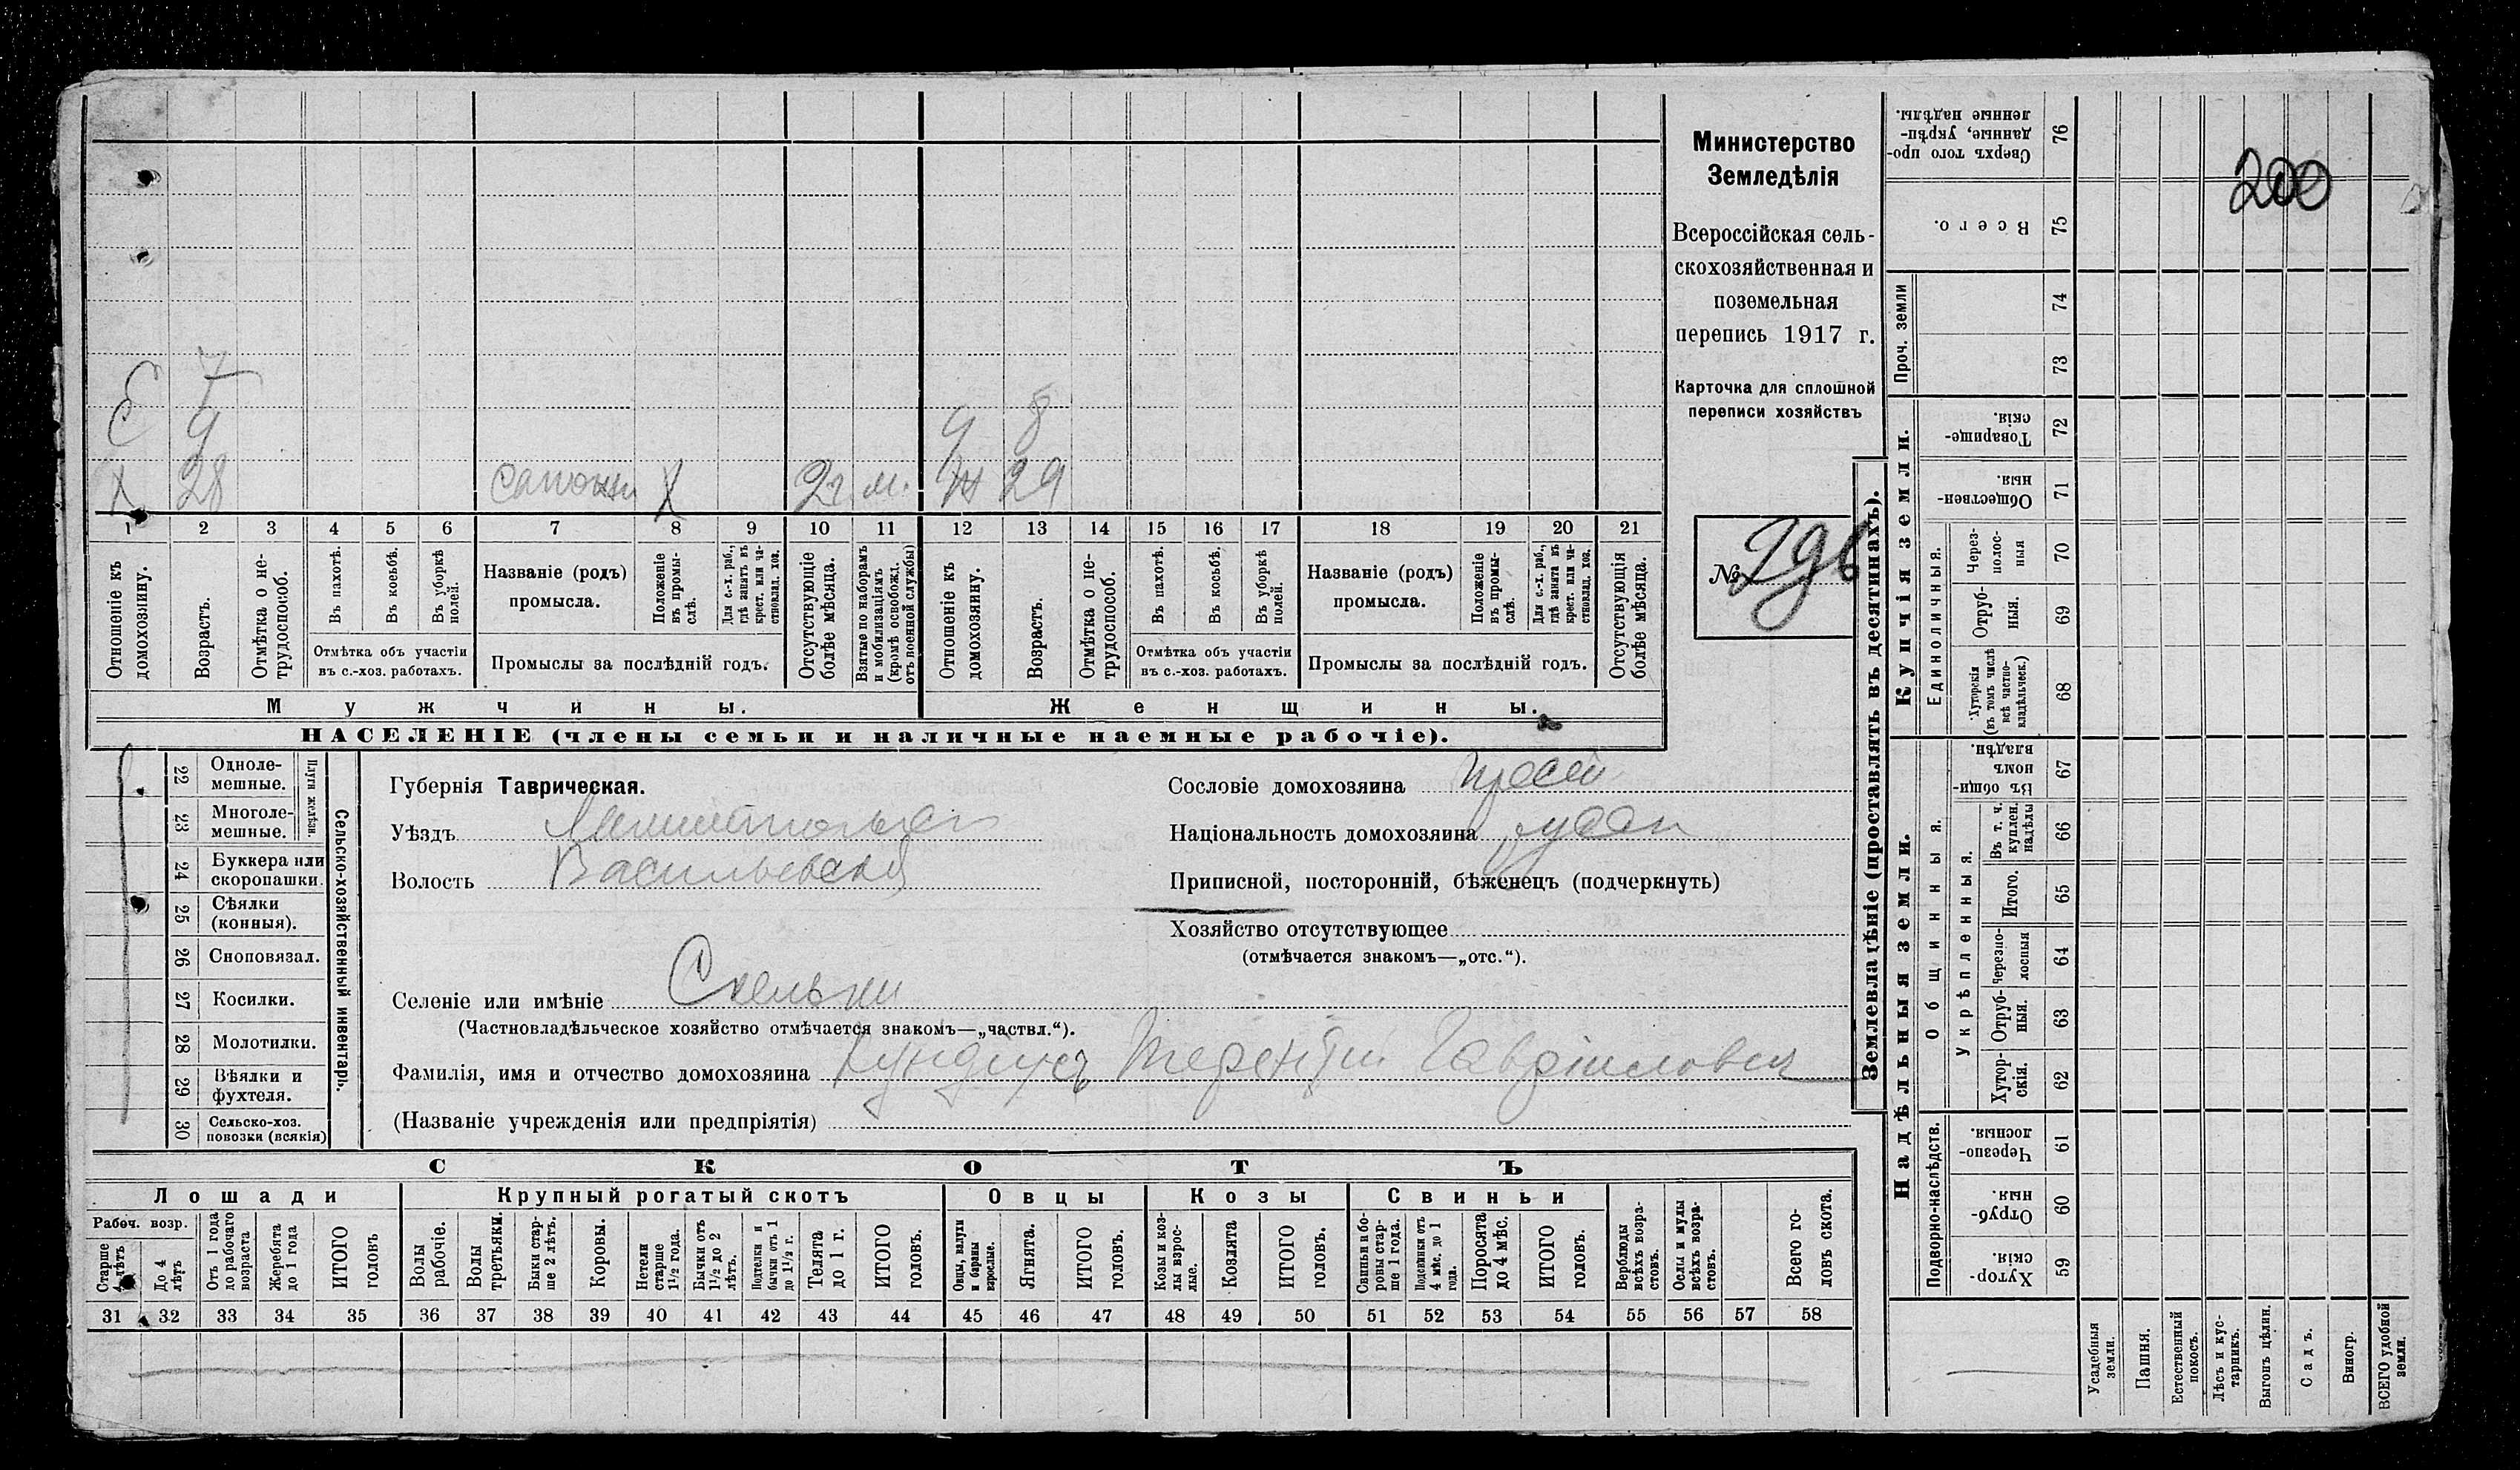 Министерство
Земледѣлія
Всероссійская сель-
скохозяйственная и
поземельная
перепись 1917 г.
Карточка для сплошной
переписи хозяйствъ
№ 296
200
7
Є 9 9 8
Х 28 сапожн Х 2 г. м. Ж 29
1 2 3 4 5 6 7 8 9 10 11 12 13 14 15 16 17 18 19 20 21
Отношеніе къ домохозяину.
Возрастъ.
Отмѣтка о не-трудоспособ.
Въ пахотѣ.
Въ косьбѣ.
Въ уборкѣ полей.
Отмѣтка объ участіи
въ с.-хоз. работахъ.
Названіе (родъ)
промысла.
Положеніе въ промы-слѣ.
Для с.-х. раб., гдѣ занятъ въ крест. или ча-стновлад. хоз.
Промыслы за послѣдній годъ.
Отсутствующіе болѣе мѣсяца.
Взятые по наборамъ и мобилизаціямъ (кромѣ освобожд. отъ военной службы)
Отношеніе къ домохозяину.
Возрастъ.
Отмѣтка о не-трудоспособ.
Въ пахотѣ.
Въ косьбѣ.
Въ уборкѣ полей.
Отмѣтка объ участіи
въ с.-хоз. работахъ.
Названіе (родъ)
промысла.
Положеніе въ промы-слѣ.
Для с.-х. раб., гдѣ занята въ крест. или ча-стновлад. хоз.
Промыслы за послѣдній годъ.
Отсутствующія болѣе мѣсяца.
Мужчины. Женщины.
НАСЕЛЕНІЕ (члены семьи и наличные наемные рабочіе).
22 Одноле-мешные.
23 Многоле-мешные.
Плуги желѣзн.
24 Буккера или скоропашки.
25 Сѣялки (конныя).
26 Сноповязал.
27 Косилки.
28 Молотилки.
29 Вѣялки и фухтеля.
30 Сельско-хоз. повозки (всякія)
Сельско-хозяйственный инвентарь.
Губернія Таврическая.
Уѣздъ Мелитопольск
Волость Васильевской
Селеніе или имѣніе Скельки
(Частновладѣльческое хозяйство отмѣчается знакомъ—„частвл.“).
Фамилія, имя и отчество домохозяина Терентій Гавріиловъ
(Названіе учрежденія или предпріятія)
Сословіе домохозяина
Національность домохозяина русск
Приписной, посторонній, бѣженецъ (подчеркнуть)
Хозяйство отсутствующее
(отмѣчается знакомъ—„отс.“).
СКОТЪ
Лошади
Крупный рогатый скотъ
Овцы
Козы
Свиньи
Рабоч. возр.
Старше 4 лѣтъ
До 4 лѣтъ
Отъ 1 года до рабочаго возраста
Жеребята до 1 года
ИТОГО головъ
Волы рабочіе.
Волы третьяки.
Быки стар-ше 2 лѣтъ.
Коровы.
Нетели старше 1½ года.
Бычки отъ 1½ до 2 лѣтъ.
Подтелки и бычки отъ 1 до 1½ г.
Телята до 1 г.
ИТОГО головъ.
Овцы, валухи и бараны взрослые.
Ягнята.
ИТОГО головъ.
Козы и коз-лы взрос-лые.
Козлята
ИТОГО головъ.
Свиньи и бо-ровы стар-ше 1 года.
Подсвинки отъ 4 мѣс. до 1 года.
Поросята до 4 мѣс.
ИТОГО головъ.
Верблюды всѣхъ возра-стовъ.
Ослы и мулы всѣхъ возра-стовъ.
Всего го-ловъ скота.
31 32 33 34 35 36 37 38 39 40 41 42 43 44 45 46 47 48 49 50 51 52 53 54 55 56 57 58
Землевладѣніе (проставлять въ десятинахъ).
Надѣльныя земли.
Купчія земли.
Проч. земли
Подворно-наслѣдств.
Общинныя.
Укрѣпленныя.
Единоличныя.
Сверхъ того про-данные, укрѣп-ленные надѣлы. 76
Всего. 75
74
73
Товарище-скія. 72
Обществен-ныя. 71
Через-полос-ныя 70
Отруб-ныя. 69
Хуторскія (въ томъ числѣ всѣ частно-владѣльческ.) 68
Въ общи-номъ владѣн. 67
Въ т. ч. куплен. надѣлы 66
Итого. 65
Черезпо-лосныя 64
Отруб-ныя. 63
Хутор-скія. 62
Черезпо-лосныя. 61
Отруб-ныя. 60
Хутор-скія. 59
Усадебныя земли.
Пашня.
Естественный покосъ.
Лѣсъ и кус-тарникъ.
Выгонъ цѣлин.
Садъ.
Виногр.
ВСЕГО удобной земли.